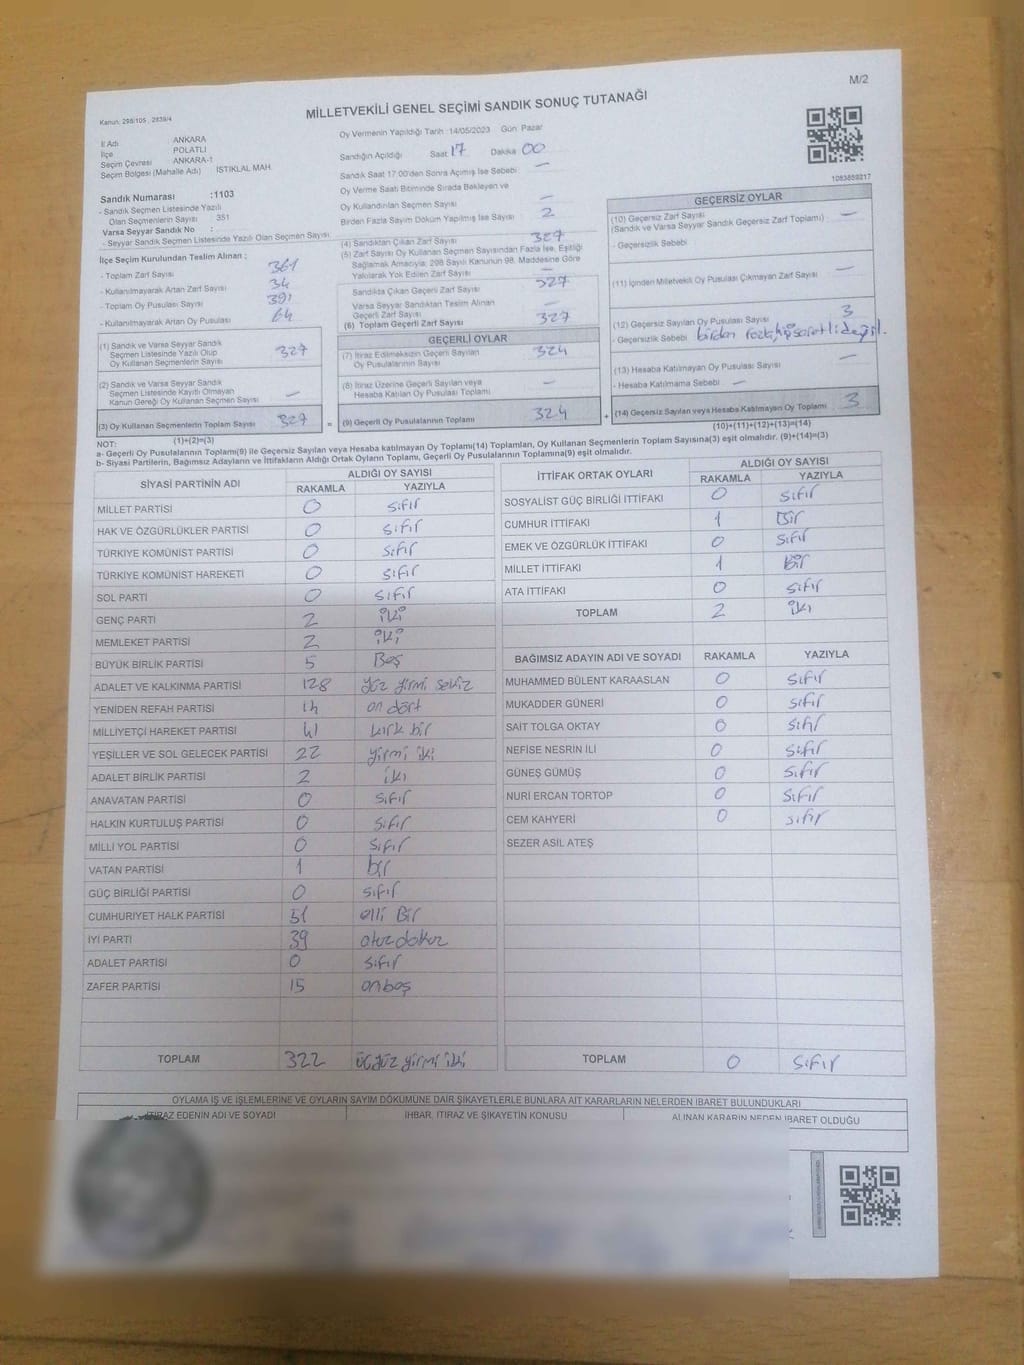 M/2
MİLLETVEKİLİ GENEL SEÇİMİ SANDIK SONUÇ TUTANAĞI
Kanun: 298/105 , 2839/4
İl Adı ANKARA
İlçe POLATLI
Seçim Çevresi ANKARA-1
Seçim Bölgesi (Mahalle Adı) İSTİKLAL MAH
Sandık Numarası :1103
- Sandık Seçmen Listesinde Yazılı
Olan Seçmenlerin Sayısı 351
Varsa Seyyar Sandık No :
- Seyyar Sandık Seçmen Listesinde Yazılı Olan Seçmen Sayısı:
İlçe Seçim Kurulundan Teslim Alınan ;
- Toplam Zarf Sayısı 361
- Kullanılmayarak Artan Zarf Sayısı 34
- Toplam Oy Pusulası Sayısı 391
- Kullanılmayarak Artan Oy Pusulası 64
(1) Sandık ve Varsa Seyyar Sandık
Seçmen Listesinde Yazılı Olup
Oy Kullanan Seçmenlerin Sayısı 327
(2) Sandık ve Varsa Seyyar Sandık
Seçmen Listesinde Kayıtlı Olmayan
Kanun Gereği Oy Kullanan Seçmen Sayısı —
(3) Oy Kullanan Seçmenlerin Toplam Sayısı 327
Oy Vermenin Yapıldığı Tarih :14/05/2023 Gün Pazar
Sandığın Açıldığı Saat 17 Dakika 00
Sandık Saat 17:00'den Sonra Açılmış İse Sebebi —
Oy Verme Saati Bitiminde Sırada Bekleyen ve
Oy Kullandırılan Seçmen Sayısı —
Birden Fazla Sayım Döküm Yapılmış İse Sayısı 2
(4) Sandıktan Çıkan Zarf Sayısı 327
(5) Zarf Sayısı Oy Kullanan Seçmen Sayısından Fazla İse, Eşitliği
Sağlamak Amacıyla, 298 Sayılı Kanunun 98. Maddesine Göre
Yakılarak Yok Edilen Zarf Sayısı —
Sandıkta Çıkan Geçerli Zarf Sayısı 327
Varsa Seyyar Sandıktan Teslim Alınan
Geçerli Zarf Sayısı —
(6) Toplam Geçerli Zarf Sayısı 327
GEÇERLİ OYLAR
(7) İtiraz Edilmeksizin Geçerli Sayılan
Oy Pusulalarının Sayısı 324
(8) İtiraz Üzerine Geçerli Sayılan veya
Hesaba Katılan Oy Pusulası Toplamı —
= (9) Geçerli Oy Pusulalarının Toplamı 324
1083859217
GEÇERSİZ OYLAR
(10) Geçersiz Zarf Sayısı —
(Sandık ve Varsa Seyyar Sandık Geçersiz Zarf Toplamı)
- Geçersizlik Sebebi
(11) İçinden Milletvekili Oy Pusulası Çıkmayan Zarf Sayısı —
(12) Geçersiz Sayılan Oy Pusulası Sayısı 3
- Geçersizlik Sebebi birden fazla
(13) Hesaba Katılmayan Oy Pusulası Sayısı —
- Hesaba Katılmama Sebebi —
+ (14) Geçersiz Sayılan veya Hesaba Katılmayan Oy Toplamı 3
(10)+(11)+(12)+(13)=(14)
NOT: (1)+(2)=(3)
a- Geçerli Oy Pusulalarının Toplamı(9) ile Geçersiz Sayılan veya Hesaba katılmayan Oy Toplamı(14) Toplamları, Oy Kullanan Seçmenlerin Toplam Sayısına(3) eşit olmalıdır. (9)+(14)=(3)
b- Siyasi Partilerin, Bağımsız Adayların ve İttifakların Aldığı Ortak Oyların Toplamı, Geçerli Oy Pusulalarının Toplamına(9) eşit olmalıdır.
SİYASİ PARTİNİN ADI ALDIĞI OY SAYISI
RAKAMLA YAZIYLA
MİLLET PARTİSİ 0 sıfır
HAK VE ÖZGÜRLÜKLER PARTİSİ 0 sıfır
TÜRKİYE KOMÜNİST PARTİSİ 0 sıfır
TÜRKİYE KOMÜNİST HAREKETİ 0 sıfır
SOL PARTİ 0 sıfır
GENÇ PARTİ 2 iki
MEMLEKET PARTİSİ 2 iki
BÜYÜK BİRLİK PARTİSİ 5 Beş
ADALET VE KALKINMA PARTİSİ 128 yüz yirmi sekiz
YENİDEN REFAH PARTİSİ 14 on dört
MİLLİYETÇİ HAREKET PARTİSİ 41 kırk bir
YEŞİLLER VE SOL GELECEK PARTİSİ 22 yirmi iki
ADALET BİRLİK PARTİSİ 2 iki
ANAVATAN PARTİSİ 0 sıfır
HALKIN KURTULUŞ PARTİSİ 0 sıfır
MİLLİ YOL PARTİSİ 0 sıfır
VATAN PARTİSİ 1 bir
GÜÇ BİRLİĞİ PARTİSİ 0 sıfır
CUMHURİYET HALK PARTİSİ 51 elli Bir
İYİ PARTİ 39 otuzdokuz
ADALET PARTİSİ 0 sıfır
ZAFER PARTİSİ 15 onbeş
TOPLAM 322 üçyüz yirmi iki
İTTİFAK ORTAK OYLARI ALDIĞI OY SAYISI
RAKAMLA YAZIYLA
SOSYALİST GÜÇ BİRLİĞİ İTTİFAKI 0 sıfır
CUMHUR İTTİFAKI 1 Bir
EMEK VE ÖZGÜRLÜK İTTİFAKI 0 sıfır
MİLLET İTTİFAKI 1 Bir
ATA İTTİFAKI 0 sıfır
TOPLAM 2 iki
BAĞIMSIZ ADAYIN ADI VE SOYADI RAKAMLA YAZIYLA
MUHAMMED BÜLENT KARAASLAN 0 sıfır
MUKADDER GÜNERİ 0 sıfır
SAİT TOLGA OKTAY 0 sıfır
NEFİSE NESRIN İLİ 0 sıfır
GÜNEŞ GÜMÜŞ 0 sıfır
NURİ ERCAN TORTOP 0 sıfır
CEM KAHYERİ 0 sıfır
SEZER ASIL ATEŞ
TOPLAM 0 sıfır
OYLAMA İŞ VE İŞLEMLERİNE VE OYLARIN SAYIM DÖKÜMÜNE DAİR ŞİKAYETLERLE BUNLARA AİT KARARLARIN NELERDEN İBARET BULUNDUKLARI
İTİRAZ EDENİN ADI VE SOYADI İHBAR, İTİRAZ VE ŞİKAYETİN KONUSU ALINAN KARARIN NEDEN İBARET OLDUĞU